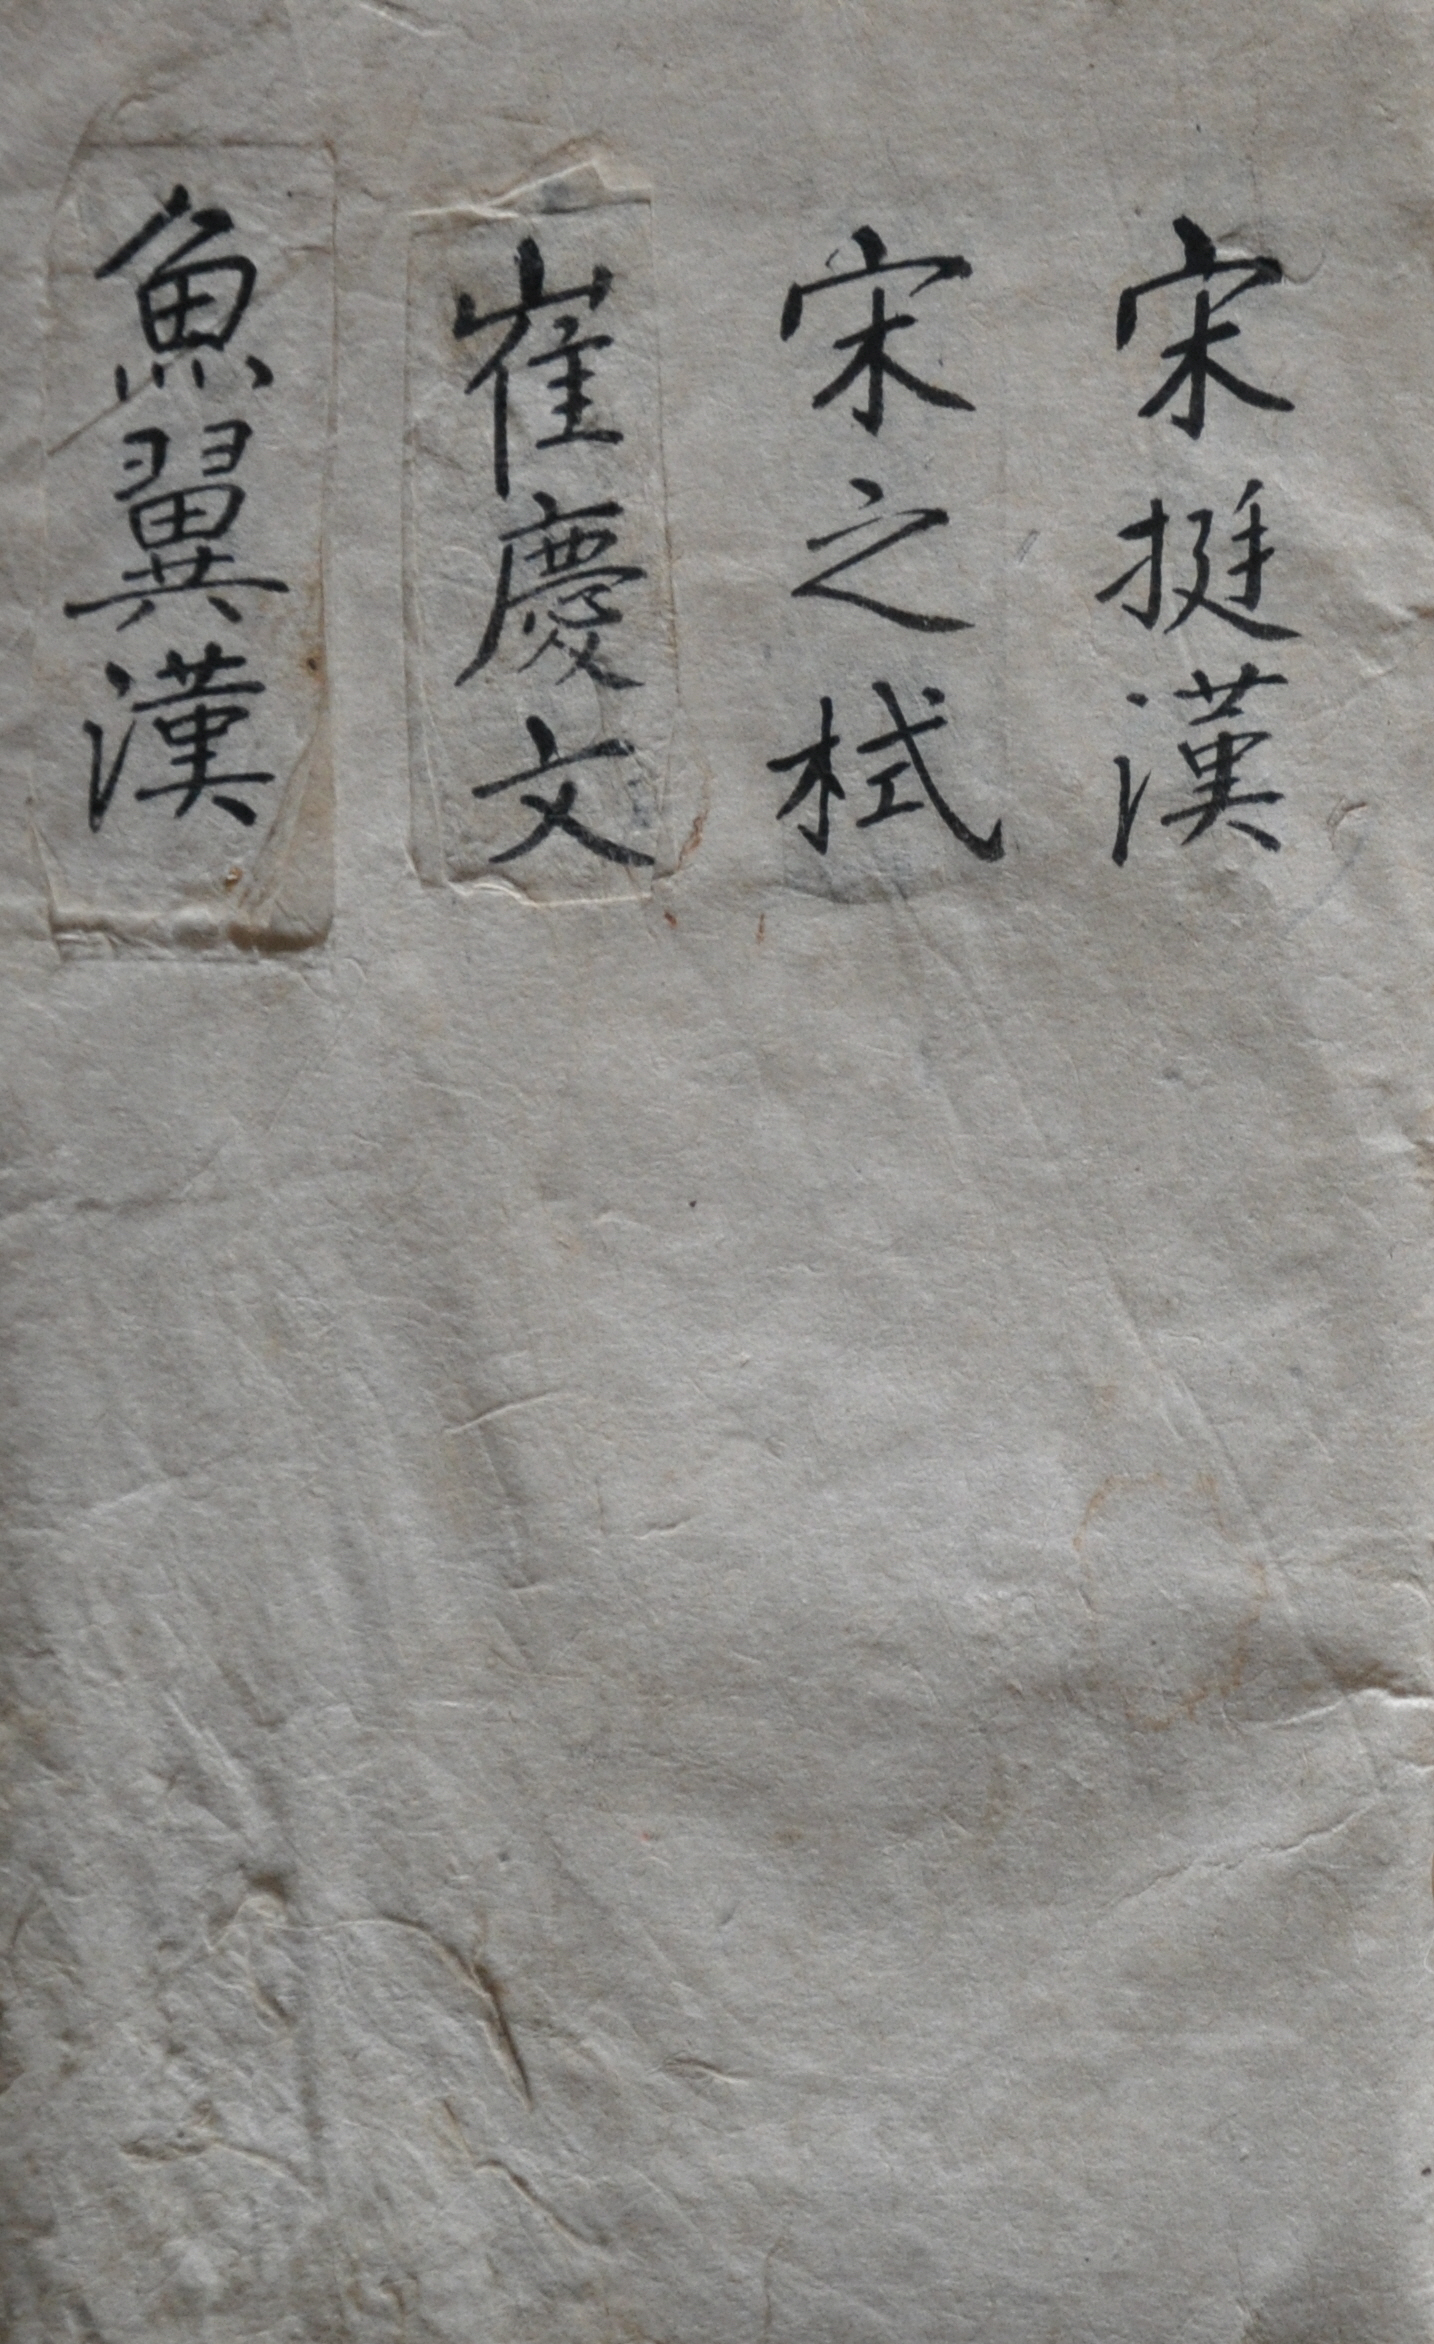 宋挺漢
宋之栻
崔慶文
魚翼漢